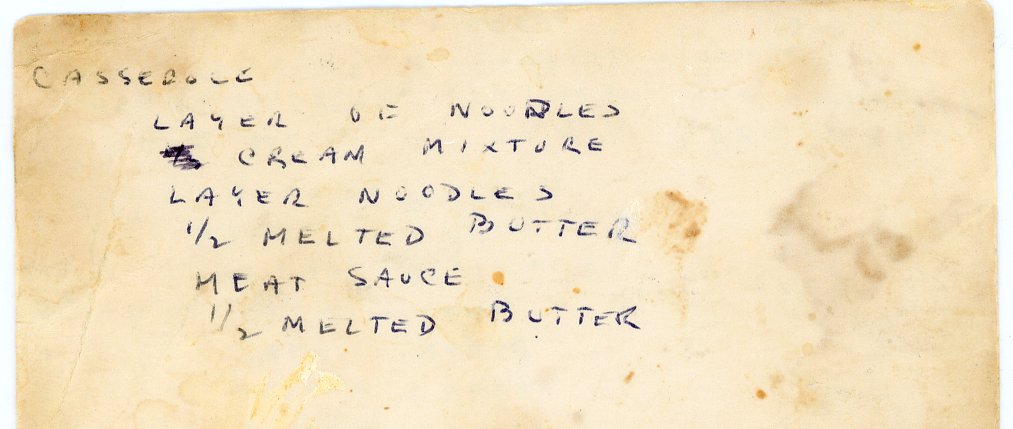 CASSEROLE
LAYER OF NOODLES
CREAM MIXTURE
LAYER NOODLES
1/2 MELTED BUTTER
MEAT SAUCE
1/2 MELTED BUTTER